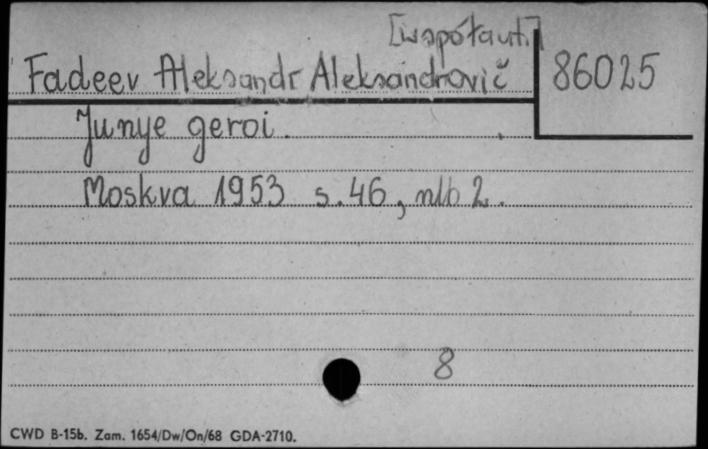 [współaut.]
Fadeev Aleksandr Aleksandrovič
86025
Junye geroi.
Moskva 1953 s. 46, nlb 2.
8
CWD B-15b. Zam. 1654/Dw/On/68 GDA-2710.